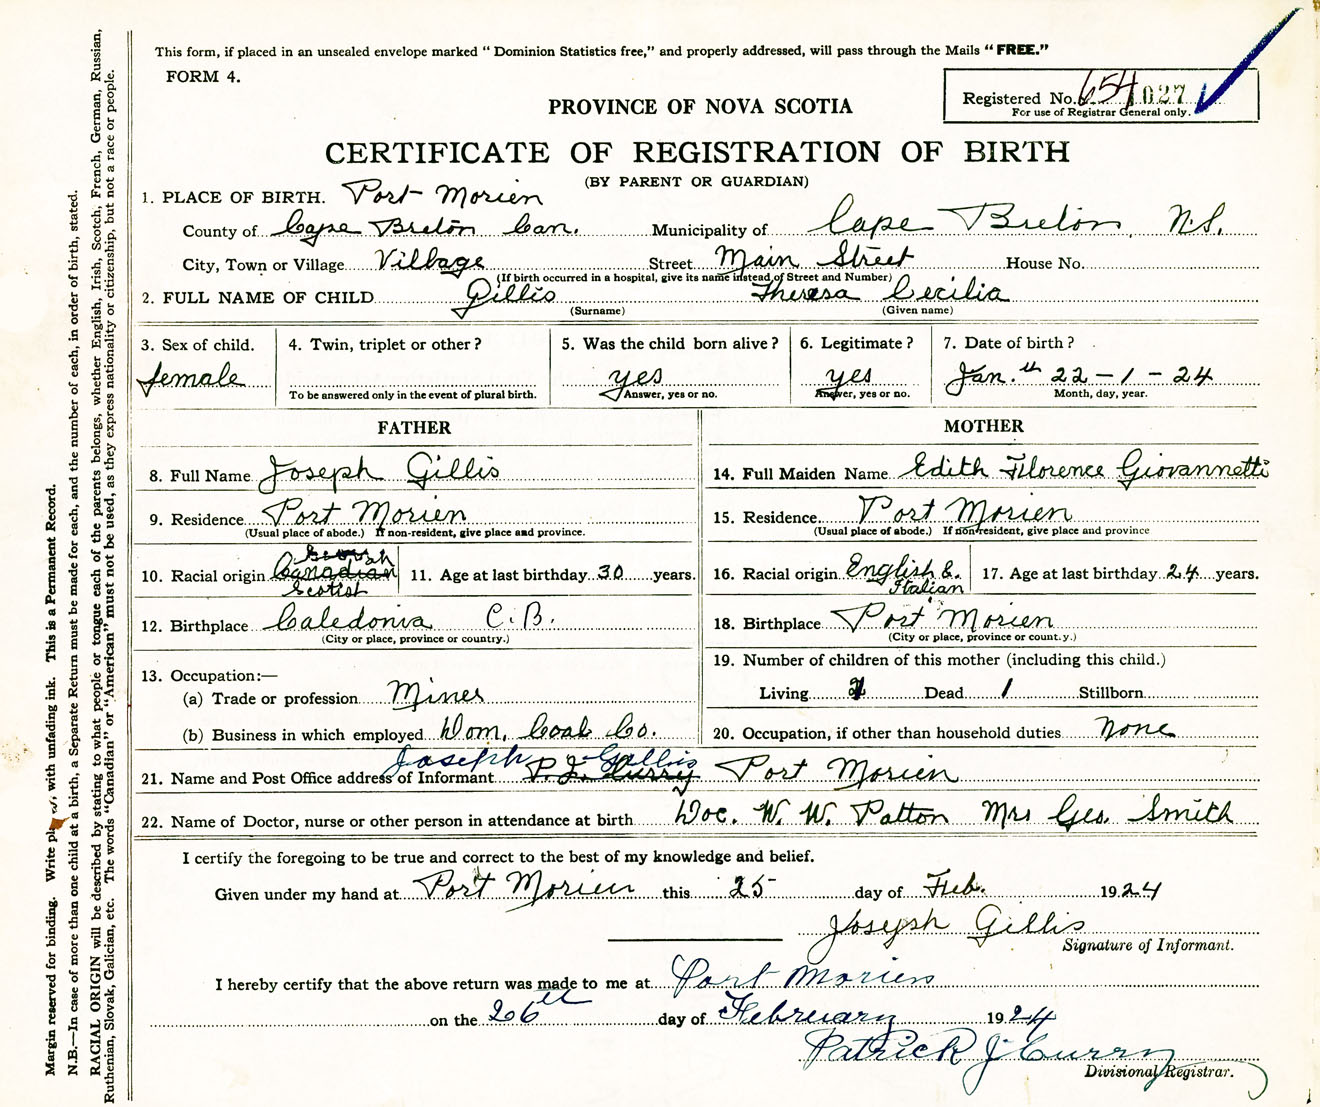 This form, if placed in an unsealed envelope marked " Dominion Statistics free," and properly addressed, will pass through the Mails "FREE."
FORM 4.
Registered No. 654 1027
For use of Registrar General only.
PROVINCE OF NOVA SCOTIA
CERTIFICATE OF REGISTRATION OF BIRTH
(BY PARENT OR GUARDIAN)
1. PLACE OF BIRTH. Port Morien
County of Cape Breton Can. Municipality of Cape Breton, N.S.
City, Town or Village Village Street Main Street House No.
(If birth occurred in a hospital, give its name instead of Street and Number)
2. FULL NAME OF CHILD Gillis Theresa Cecilia
(Surname) (Given name)
3. Sex of child. 4. Twin, triplet or other? 5. Was the child born alive? 6. Legitimate? 7. Date of birth?
female yes yes Jan.th 22-1-24
To be answered only in the event of plural birth. Answer, yes or no. Answer, yes or no. Month, day, year.
FATHER
8. Full Name Joseph Gillis
9. Residence Port Morien
(Usual place of abode.) If non-resident, give place and province.
10. Racial origin Canadian Scotish 11. Age at last birthday 30 years.
12. Birthplace Caledonia C.B.
(City or place, province or country.)
13. Occupation:—
(a) Trade or profession Miner
(b) Business in which employed Dom. Coal Co.
MOTHER
14. Full Maiden Name Edith Florence Giovannetti
15. Residence Port Morien
(Usual place of abode.) If non-resident, give place and province
16. Racial origin English & Italian 17. Age at last birthday 24 years.
18. Birthplace Port Morien
(City or place, province or county.)
19. Number of children of this mother (including this child.)
Living Dead 1 Stillborn
20. Occupation, if other than household duties None
Joseph Gillis
21. Name and Post Office address of Informant P. J. Curry Port Morien
22. Name of Doctor, nurse or other person in attendance at birth Doc. W. W. Patton Mrs Geo. Smith
I certify the foregoing to be true and correct to the best of my knowledge and belief.
Given under my hand at Port Morien this 25 day of Feb. 1924
Joseph Gillis
Signature of Informant.
I hereby certify that the above return was made to me at Port Morien
on the 26th day of February 1924
Patrick J. Curry
Divisional Registrar.
Margin reserved for binding. Write with unfading ink. This is a Permanent Record.
N.B.—In case of more than one child at a birth, a Separate Return must be made for each, and the number of each, in order of birth, stated.
RACIAL ORIGIN will be described by stating to what people or tongue each of the parents belongs, whether English, Irish, Scotch, French, German, Russian,
Ruthenian, Slovak, Galician, etc. The words "Canadian" or "American" must not be used, as they express nationality or citizenship, but not a race or people.